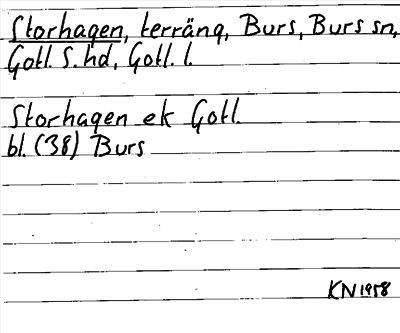 Storhagen, terräng, Burs, Burs sn,
Gotl. S. hd, Gotl. l.
Storhagen ek Gotl.
bl. (38) Burs
KN 1958